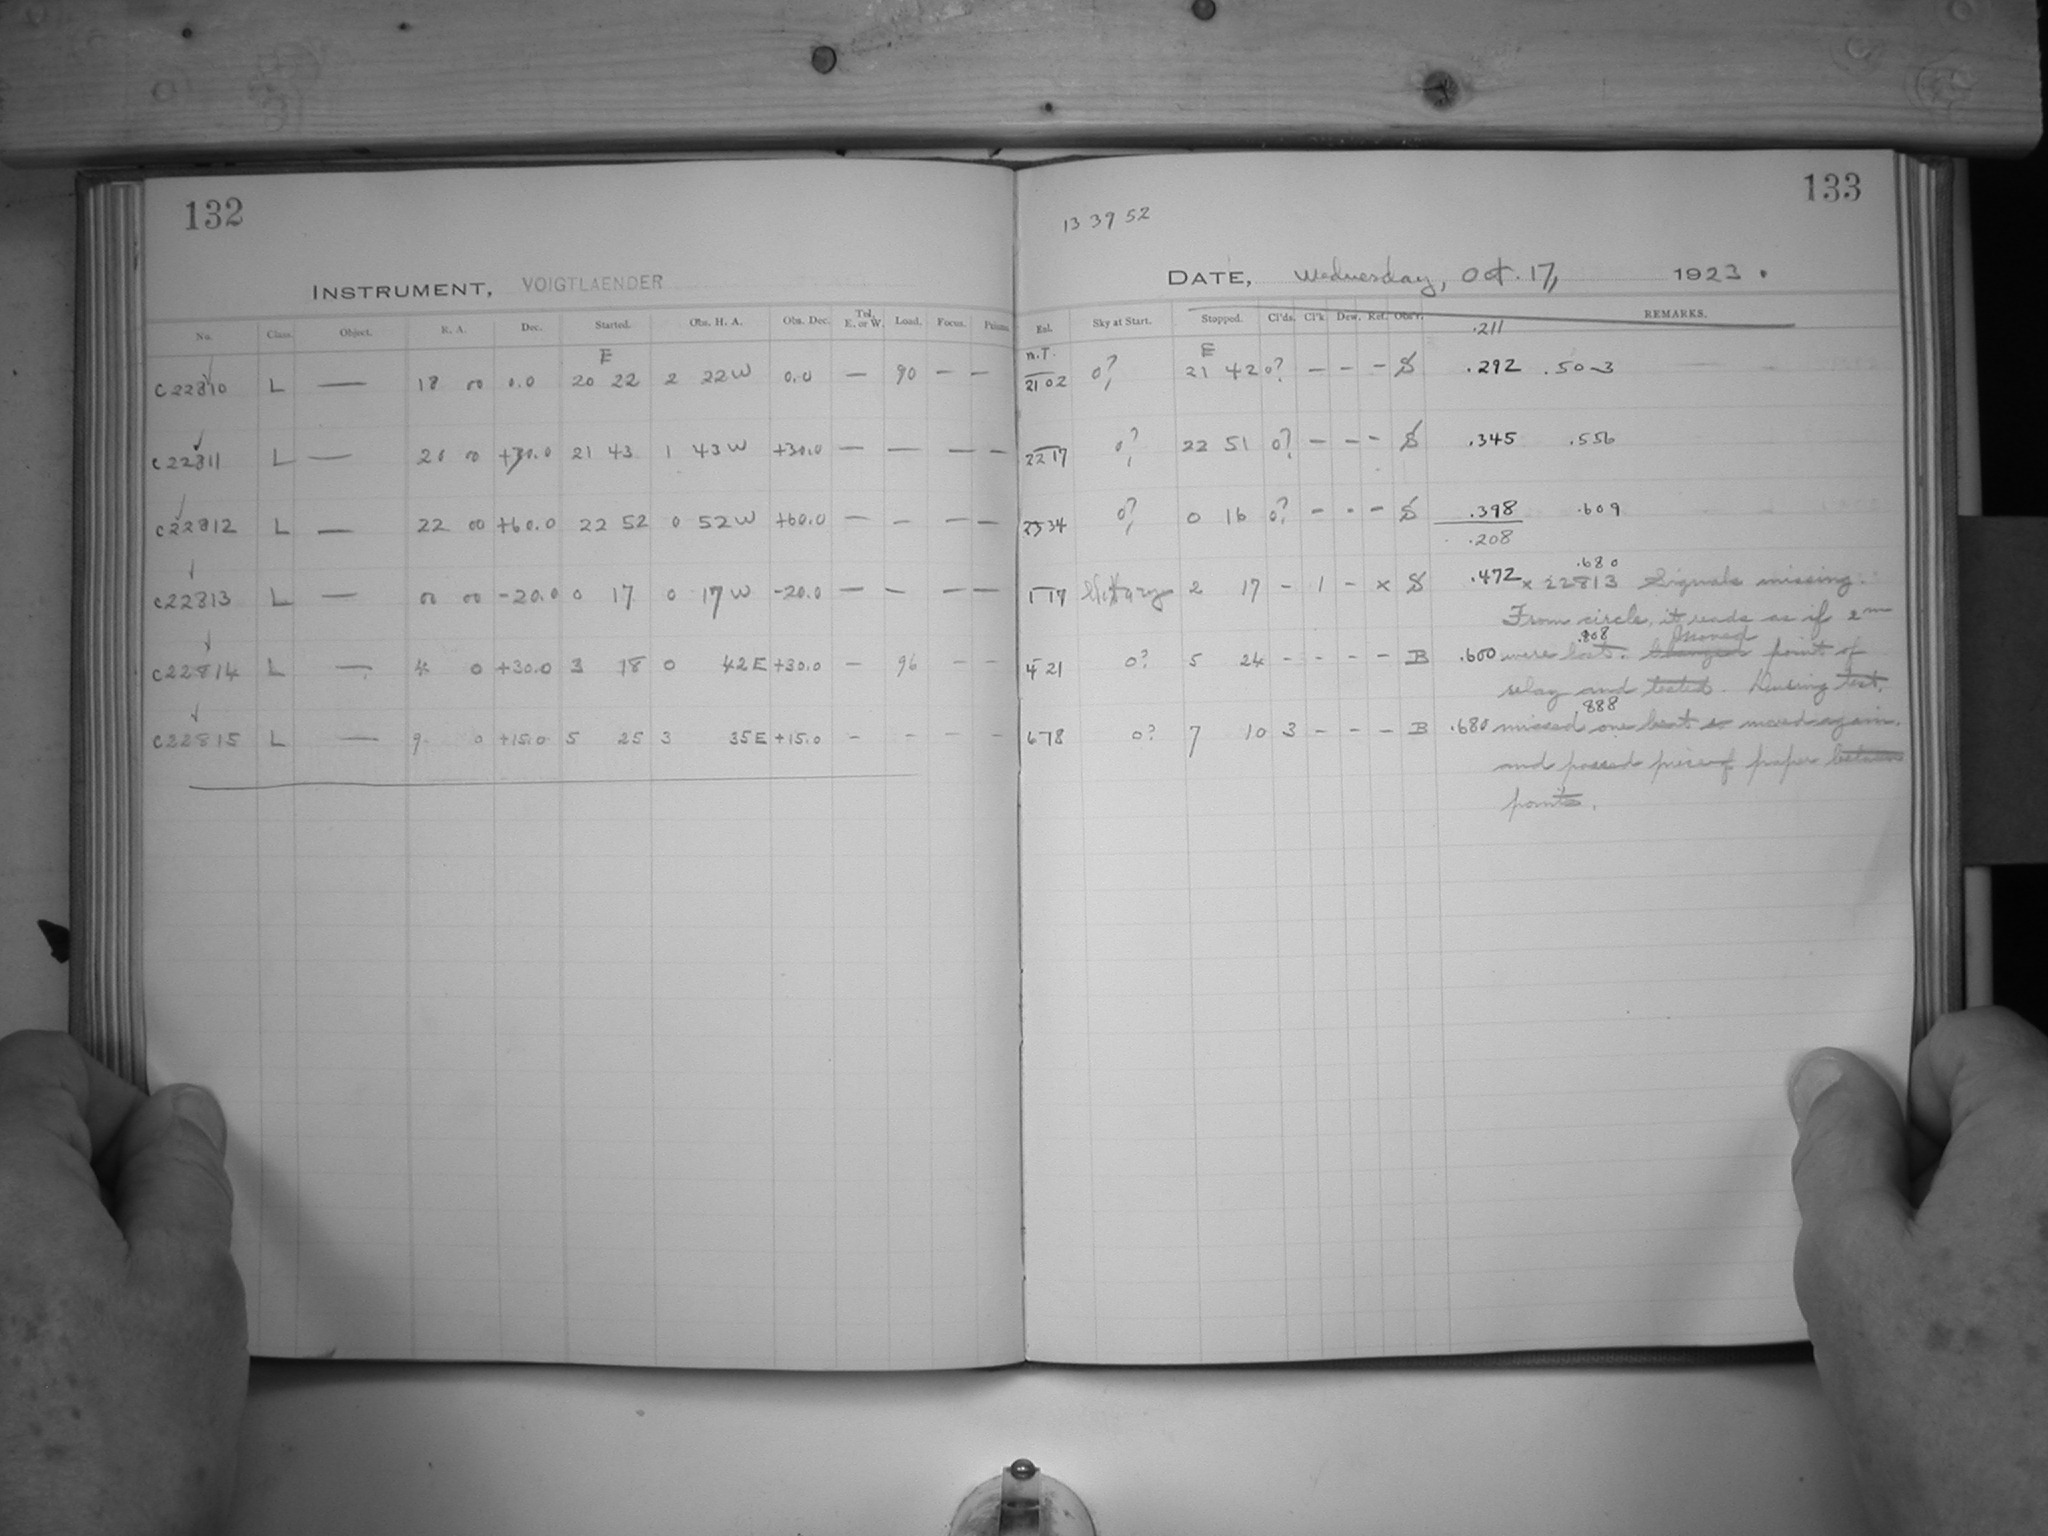 132
INSTRUMENT, VOIGTLAENDER
No. Class. Object. R. A. Dec. Started. Obs. H. A. Obs. Dec. Tel. E. or W. Load. Focus.
E
C22810 L — 18 00 0.0 20 22 2 22W 0.0 — 90 — —
C22811 L — 20 00 +30.0 21 43 1 43W +30.0 — — — —
C22812 L — 22 00 +60.0 22 52 0 52W +60.0 — — — —
C22813 L — 00 00 -20.0 0 17 0 17W -20.0 — — — —
C22814 L — 4 0 +30.0 3 18 0 42E +30.0 — 96 — —
C22815 L — 9 0 +15.0 5 25 3 35E +15.0 — — — —
133
13 39 52
DATE, Wednesday, Oct. 17, 1923.
Sky at Start. Stopped. Cl'ds. Cl'k. Dew. Ref. Obs'r. REMARKS.
.211
m.T. E
21 02 0? 21 42 0? — — — S .292 .503
22 17 0? 22 51 0? — — — S .345 .556
23 34 0? 0 16 0? — — — S .398 .609
.208
.680
1 17 2 17 — 1 — x S .472 x 22813 Signals missing.
From circle, it reads as if 2m
.808 Moved
4 21 0? 5 24 — — — — B .600 were lost. Changed point of
relay and tested. During test,
.888
6 18 0? 7 10 3 — — — B .680 missed one beat so moved again.
and passed piece of paper between
points.